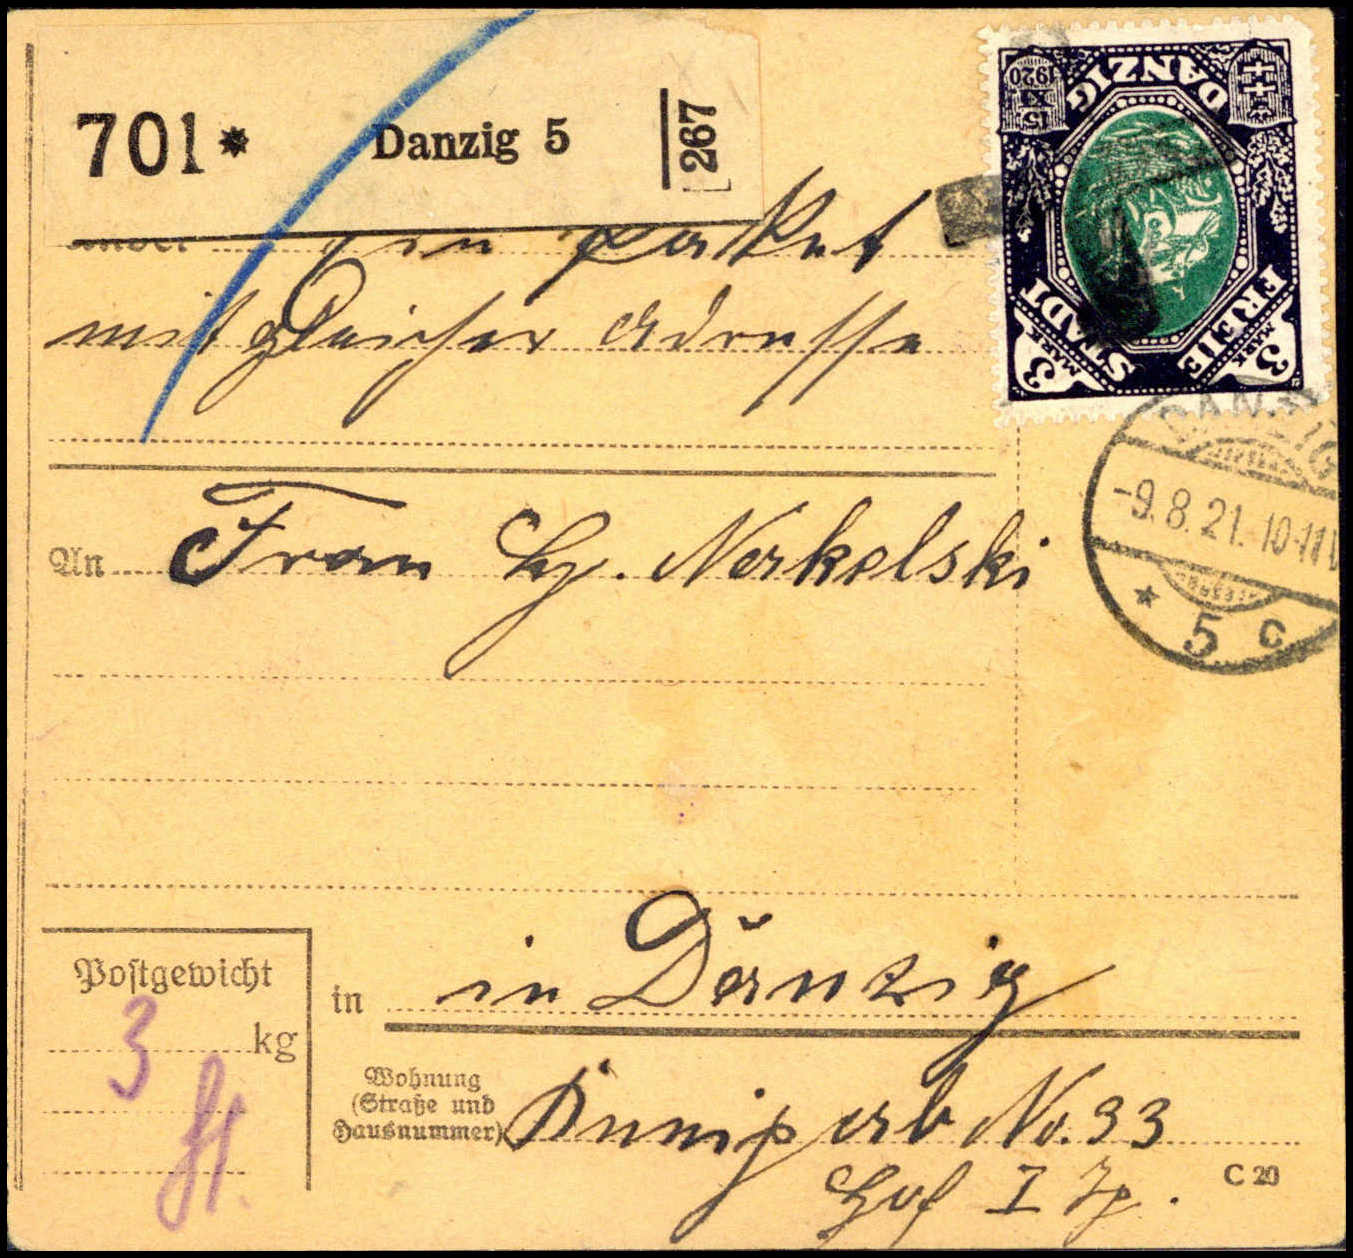 701* Danzig 5 267
Ein Paket
mit gleicher Adresse
An Frau Hg. Nerkelski
Postgewicht
3 kg
in in Danzig
Wohnung
(Straße und
Hausnummer)
No. 33
Hof I
C 20
15 XI 1920
DANZIG
FREIE STADT
3 MARK
3 MARK
DANZIG
-9.8.21. 10-11V
* 5 c